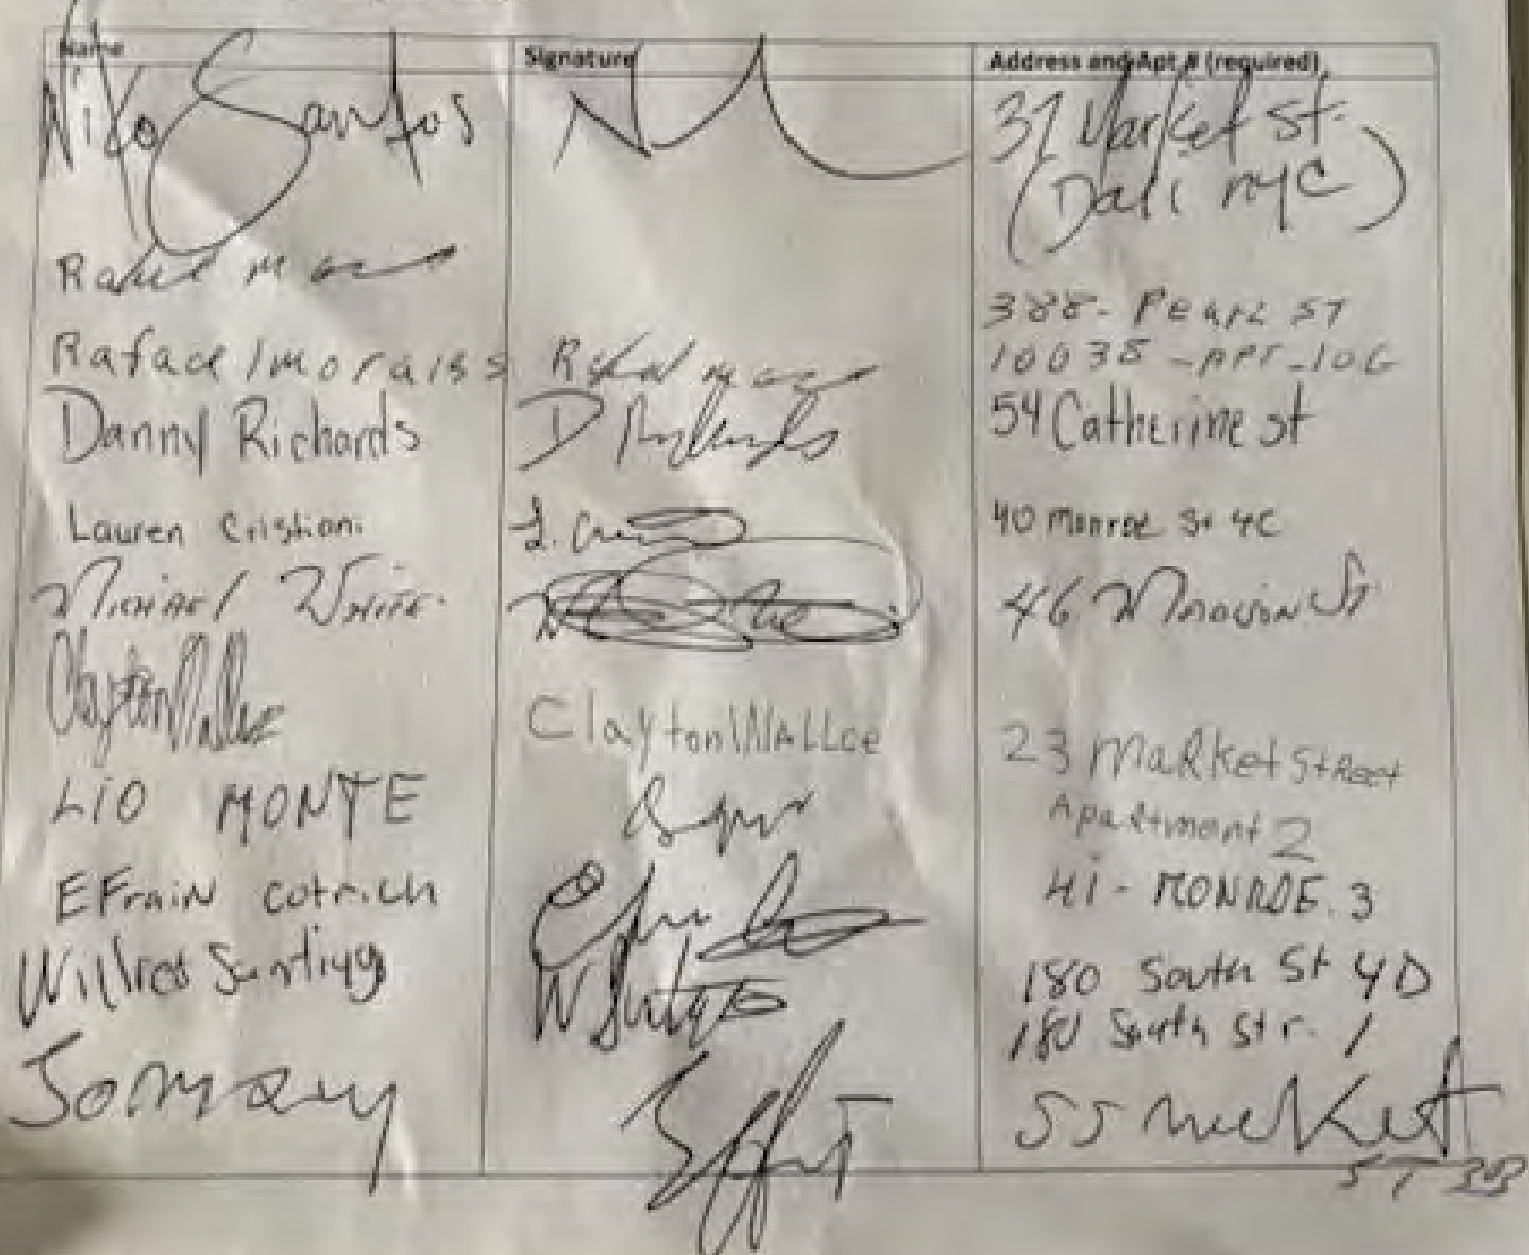 Name Signature Address and Apt # (required)
Niko Santos 37 Market St.
(Dali NYC)
388- Pearl ST
Rafael moraiss 10038 -APT-10G
Danny Richards D 54 Catherine st
Lauren Cristiani L. 40 Monroe St 4C
Michael White 46 St
Clayton Wallce Clayton WALLce 23 Market Street
Apartment 2
LIO MONTE 41- MONROE. 3
EFrain cotrich 180 South St 4D
W 180 South Str. 1
55 Market
ST 3B